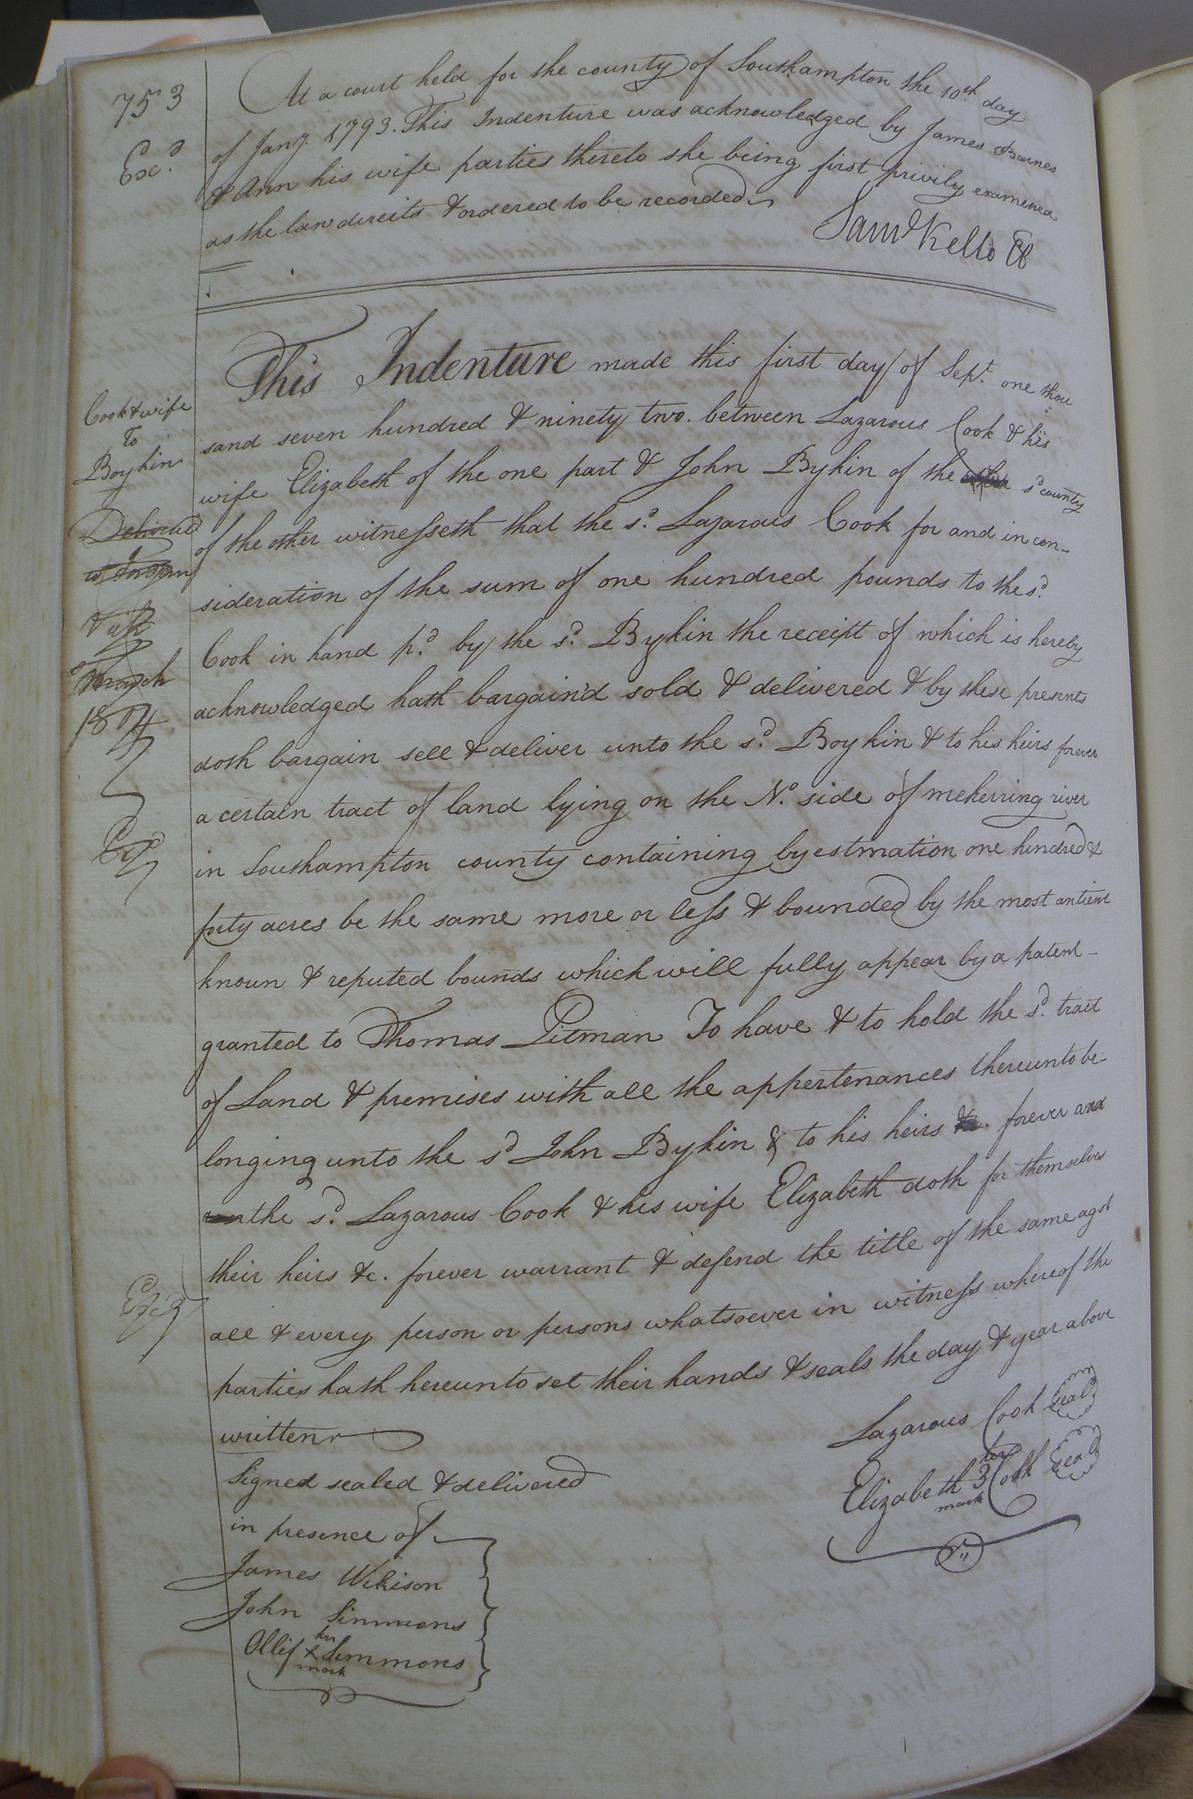 753
Exd.
At a court held for the county of Southampton the 10th day
of Jany. 1793. This Indenture was acknowledged by James Barnes
& Ann his wife parties thereto she being first privily examened
as the law direits & ordered to be recorded
Saml Kello
This Indenture made this first day of Sept. one thou
sand seven hundred & ninety two. between Lazarous Cook & his
wife Elizabeth of the one part & John Bykin of the sd county
of the other witnesseth that the sd. Lazarous Cook for and in con-
sideration of the sum of one hundred pounds to the sd.
Cook in hand pd. by the sd. Bykin the receipt of which is hereby
acknowledged hath bargain'd sold & delivered & by these presents
doth bargain sell & deliver unto the sd. Boykin & to his heirs forever
a certain tract of land lying on the No. side of meherring river
in Southampton county containing by estmation one hundred &
forty acres be the same more or less & bounded by the most antient
known & reputed bounds which will fully appear by a patent-
granted to Thomas Pitman To have & to hold the sd. tract
of Land & premises with all the appertenances thereunto be-
longing unto the sd John Bykin & to his heirs forever and
the sd. Lazarous Cook & his wife Elizabeth doth for themselves
their heirs &c. forever warrant & defend the title of the same agst
all & every person or persons whatsoever in witness whereof the
parties hath hereunto set their hands & seals the day & year above
written
Lazarous Cook Seal
her
Elizabeth 3 Cook Seal
mark
Signed sealed & delivered
in presence of
James Wilkison
John Simmons
her
Ollif x Simmons
mark
Cook & wife
To
Boykin
Delivered
March
1804
Exd